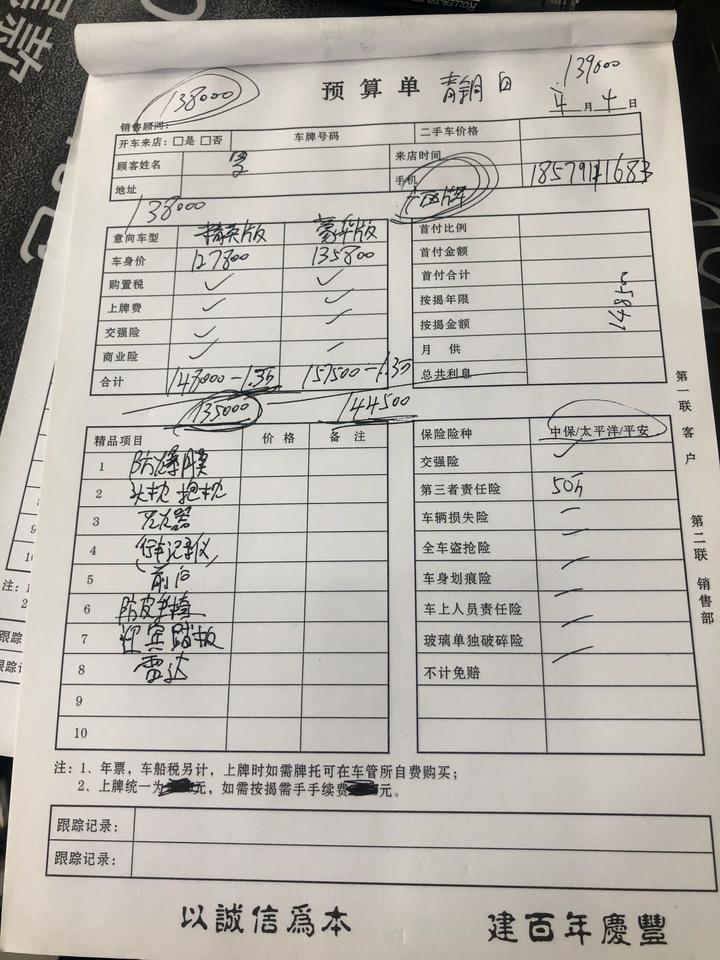 预算单 青铜 白
138000
139000
4月4日
销售顾问:
开车来店: □是 □否 车牌号码 二手车价格
顾客姓名 来店时间
地址 手机
138000
意向车型 精英版 豪华版 首付比例
车身价 127800 135800 首付金额
购置税 ✓ ✓ 首付合计
上牌费 ✓ ✓ 按揭年限
交强险 ✓ 按揭金额 148500
商业险 ✓ 月 供
合计 148000-1.3万 157500-1.3万 总共利息
135000 144500
精品项目 价 格 备 注 保险险种 中保/太平洋/平安
1 防爆膜 交强险 ✓
2 头枕 抱枕 第三者责任险 50万
3 灭火器 车辆损失险
4 行车记录仪 全车盗抢险
5 前后 车身划痕险
6 防皮 车上人员责任险
7 迎宾踏板 玻璃单独破碎险
8 雷达 不计免赔
9
10
第一联 客户
第二联 销售部
注: 1、年票,车船税另计,上牌时如需牌托可在车管所自费购买;
2、上牌统一为 元,如需按揭需手手续费 元。
跟踪记录:
跟踪记录:
以誠信爲本 建百年慶豐